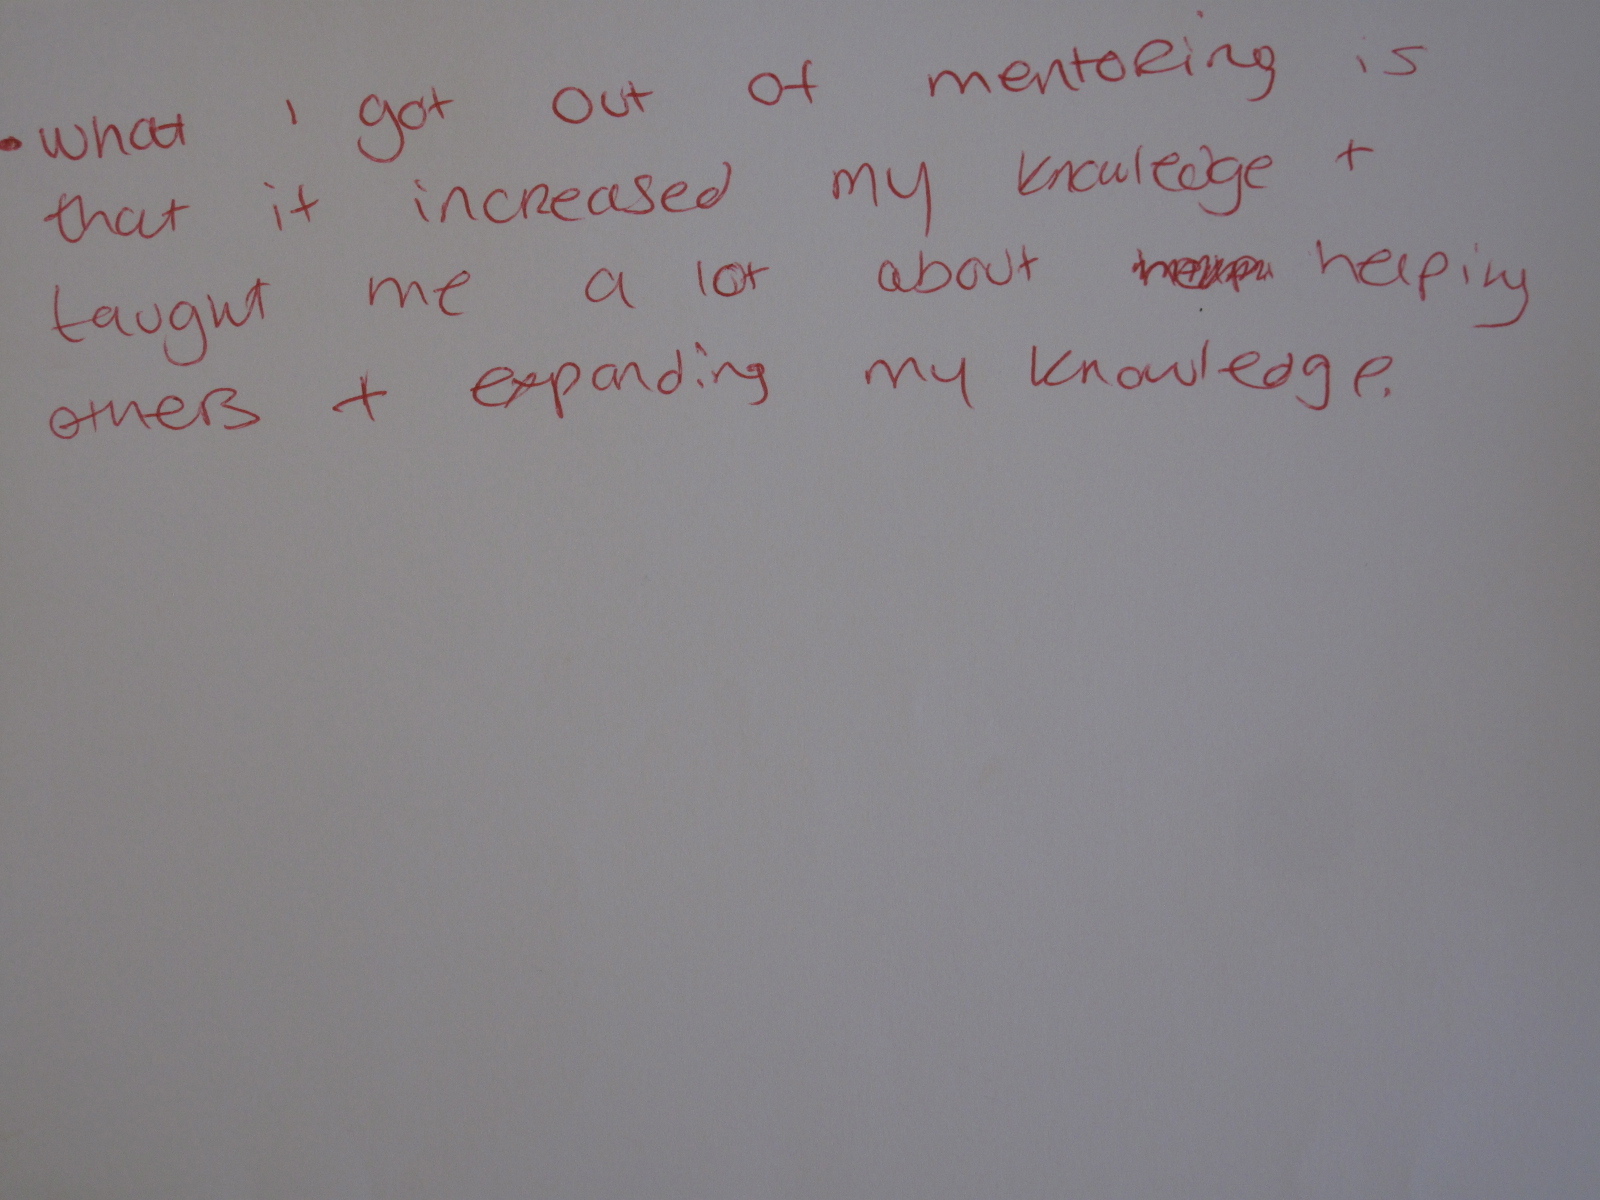 • what i got out of mentoring is
that it increased my knowledge +
taught me a lot about helping
others + expanding my knowledge.